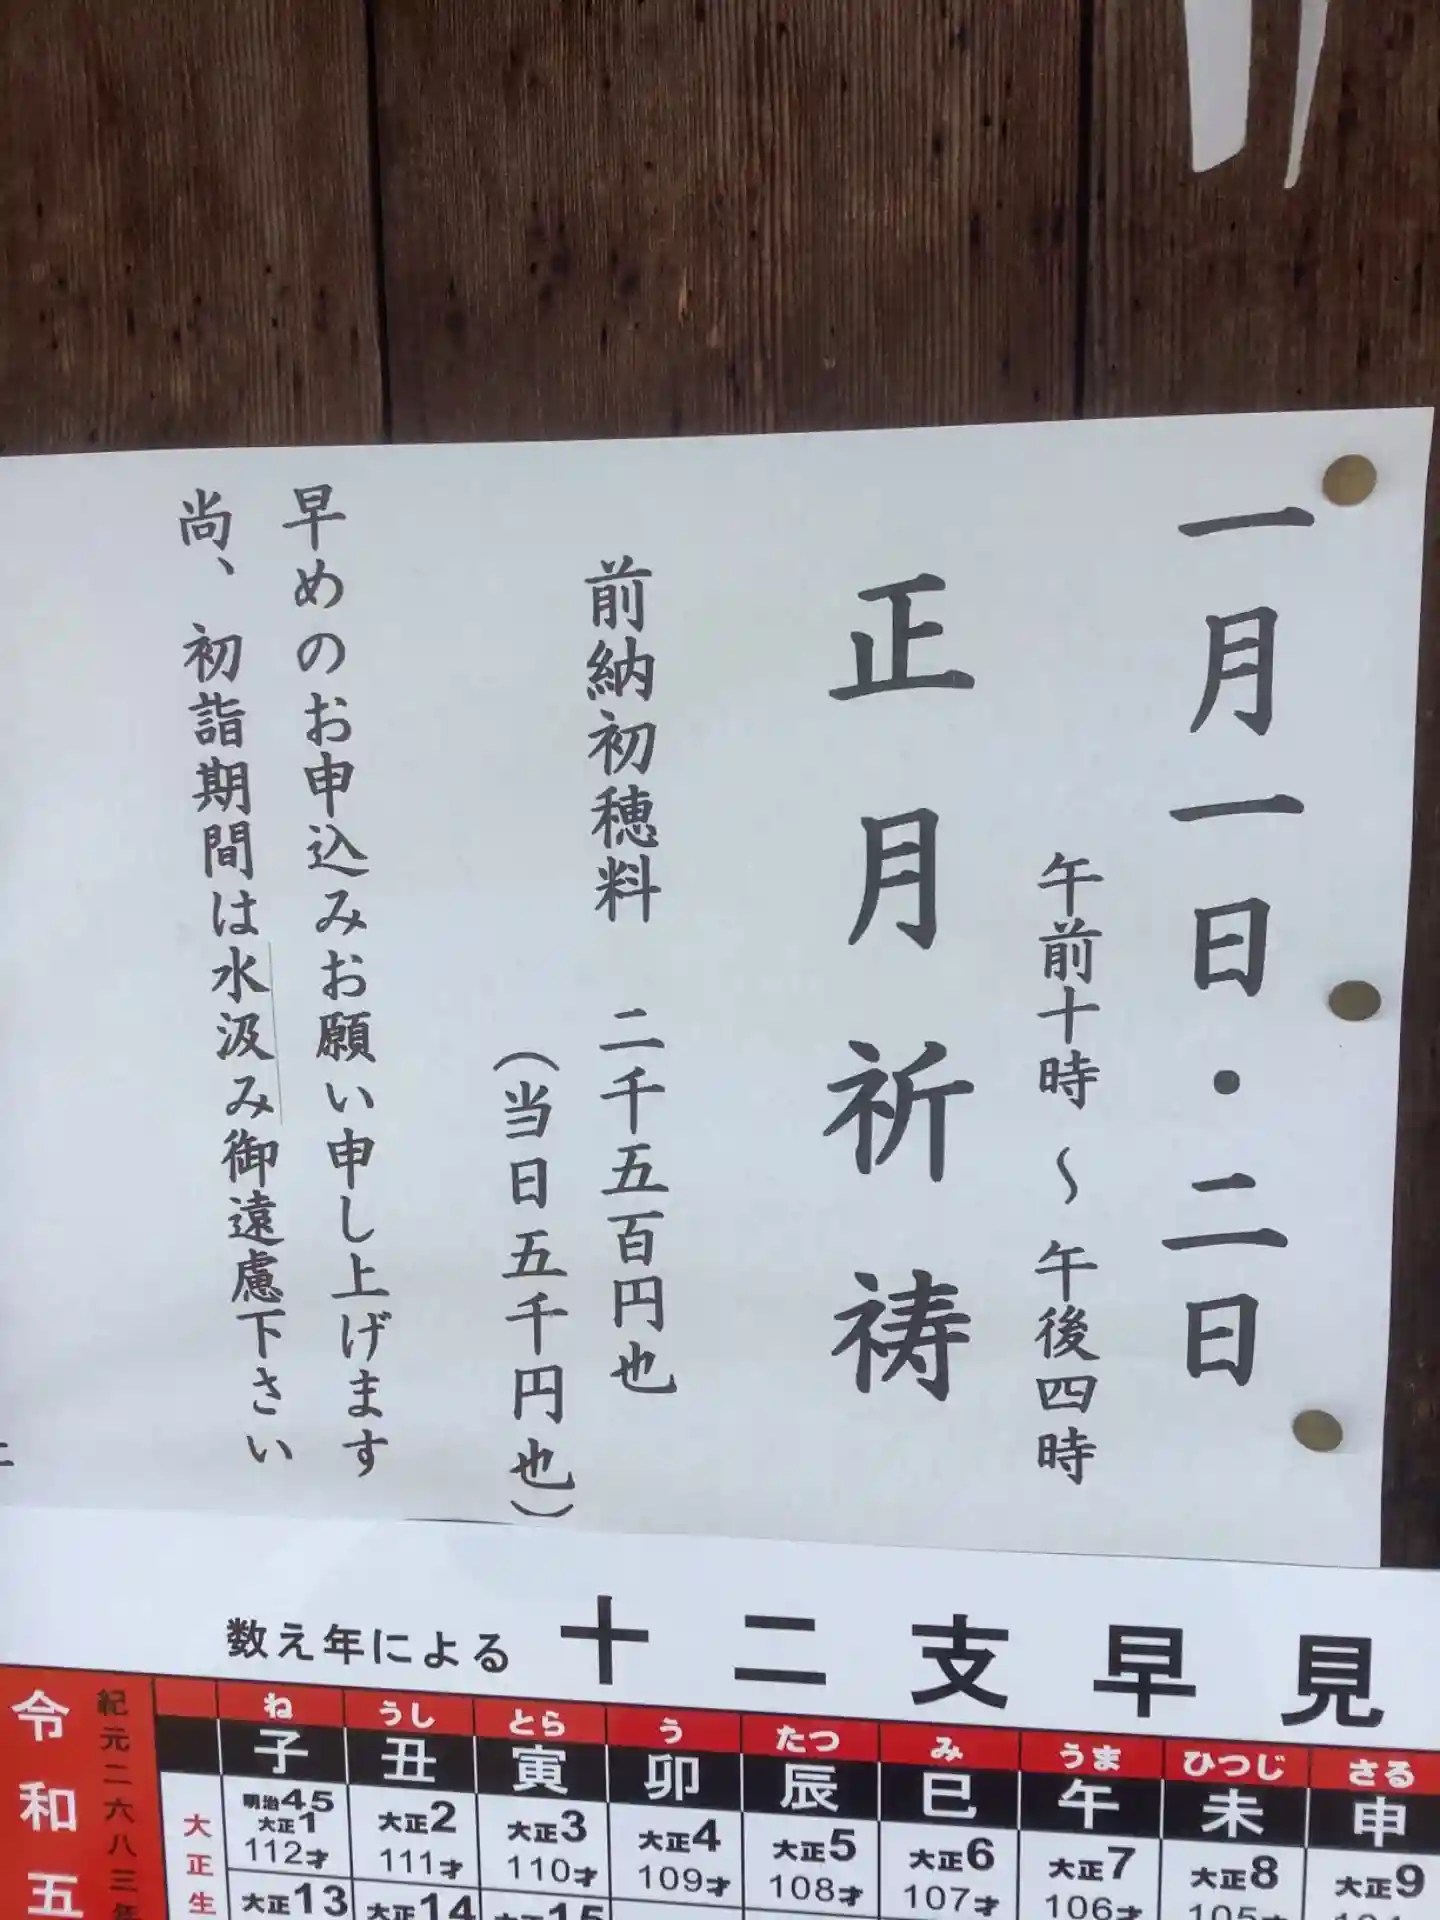 一月一日・二日
午前十時 〜 午後四時
正月祈祷
前納初穂料 二千五百円也
(当日五千円也)
早めのお申込みお願い申し上げます
尚、初詣期間は水汲み御遠慮下さい
数え年による 十二支早見
令和五
紀元二六八三年
ね うし とら う たつ み うま ひつじ さる
子 丑 寅 卯 辰 巳 午 未 申
大正生
明治45
大正1 大正2 大正3 大正4 大正5 大正6 大正7 大正8 大正9
112才 111才 110才 109才 108才 107才 106才 105才
大正13 大正14 大正15